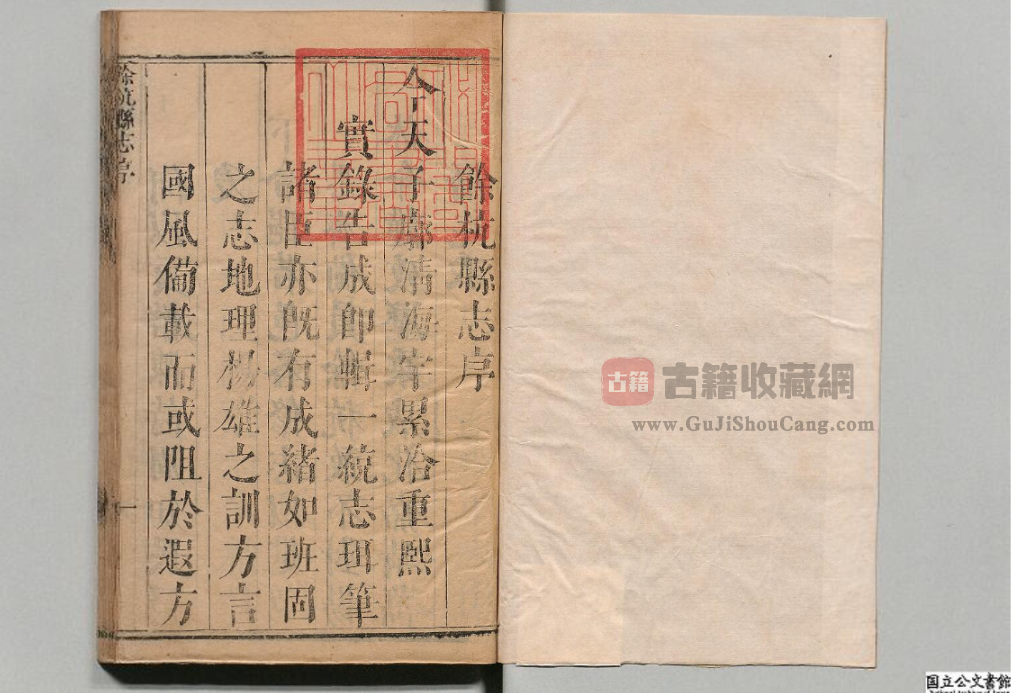 餘杭縣志序
今天子廓清海宇累洽重熙
實錄告成即輯一統志珥筆
諸臣亦既有成緒如班固
之志地理楊雄之訓方言
國風備載而或阻於遐方
餘杭縣志序
一
古籍
古籍收藏網
www.GuJiShouCang.com
国立公文書館